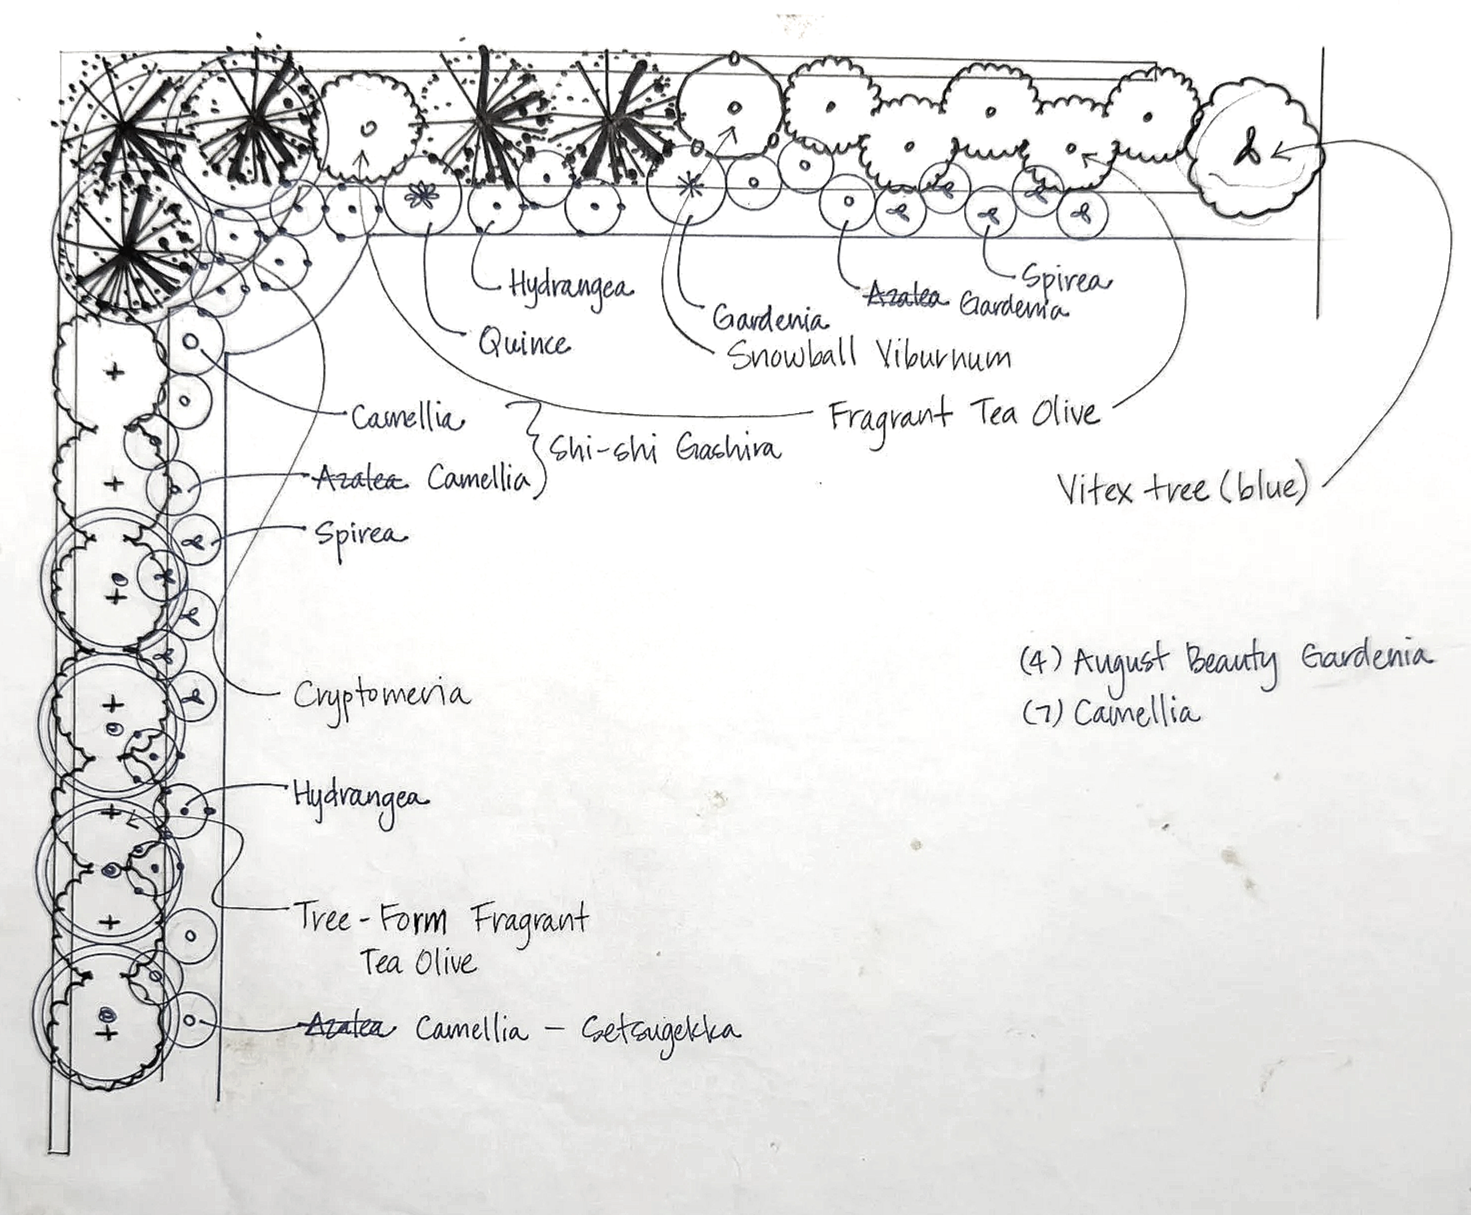 Hydrangea
Spirea
Azalea Gardenia
Gardenia
Quince
Snowball Viburnum
Camellia
Fragrant Tea Olive
Shi-shi Gashira
Azalea Camellia
Vitex tree (blue)
Spirea
(4) August Beauty Gardenia
(7) Camellia
Cryptomeria
Hydrangea
Tree-Form Fragrant
Tea Olive
Azalea Camellia - Setsugekka